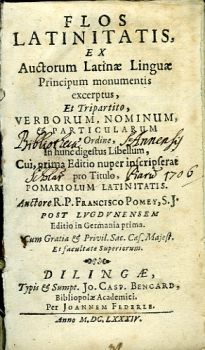 FLOS
LATINITATIS,
EX
Auctorum Latinæ Linguæ
Principum monumentis
excerptus,
Et Tripartito,
VERBORUM, NOMINUM,
& PARTICULARUM
Ordine,
In hunc digestus Libellum,
Cui, prima Editio nuper inscripserat
pro Titulo, 1706
POMARIOLUM LATINITATIS.
Auctore R. P. FRANCISCO POMEY, S. J.
POST LVGDVNENSEM
Editio in Germania prima.
Cum Gratia & Privil. Sac. Cæs. Majest.
Et facultate Superiorum.
DILINGÆ,
Typis & Sumpt. JO. CASP. BENCARD,
Bibliopolæ Academici.
Per JOANNEM FEDERLE.
Anno M.DC.LXXXIV.